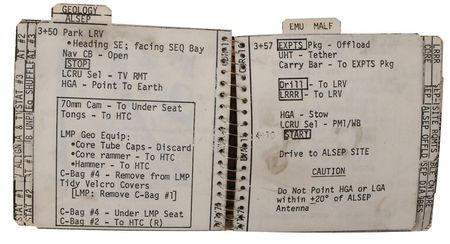 GEOLOGY
ALSEP
3+50 Park LRV
•Heading SE; facing SEQ Bay
Nav CB - Open
STOP
LCRU Sel - TV RMT
HGA - Point To Earth
70mm Cam - To Under Seat
Tongs - To HTC
LMP Geo Equip:
•Core Tube Caps - Discard
•Core rammer - To HTC
•Hammer - To HTC
C-Bag #4 - Remove from LMP
Tidy Velcro Covers
[LMP: Remove C-Bag #1]
C-Bag #4 - Under LMP Seat
C-Bag #2 - To HTC (R)
EMU MALF
3+57 EXPTS Pkg - Offload
UHT - Tether
Carry Bar - To EXPTS Pkg
Drill - To LRV
LRRR - To LRV
HGA - Stow
LCRU Sel - PM1/WB
START
Drive to ALSEP SITE
CAUTION
Do Not Point HGA or LGA
within +20° of ALSEP
Antenna
LRRR
CORE